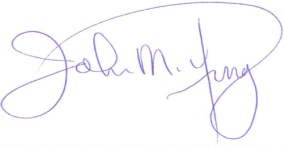 John M. Yung